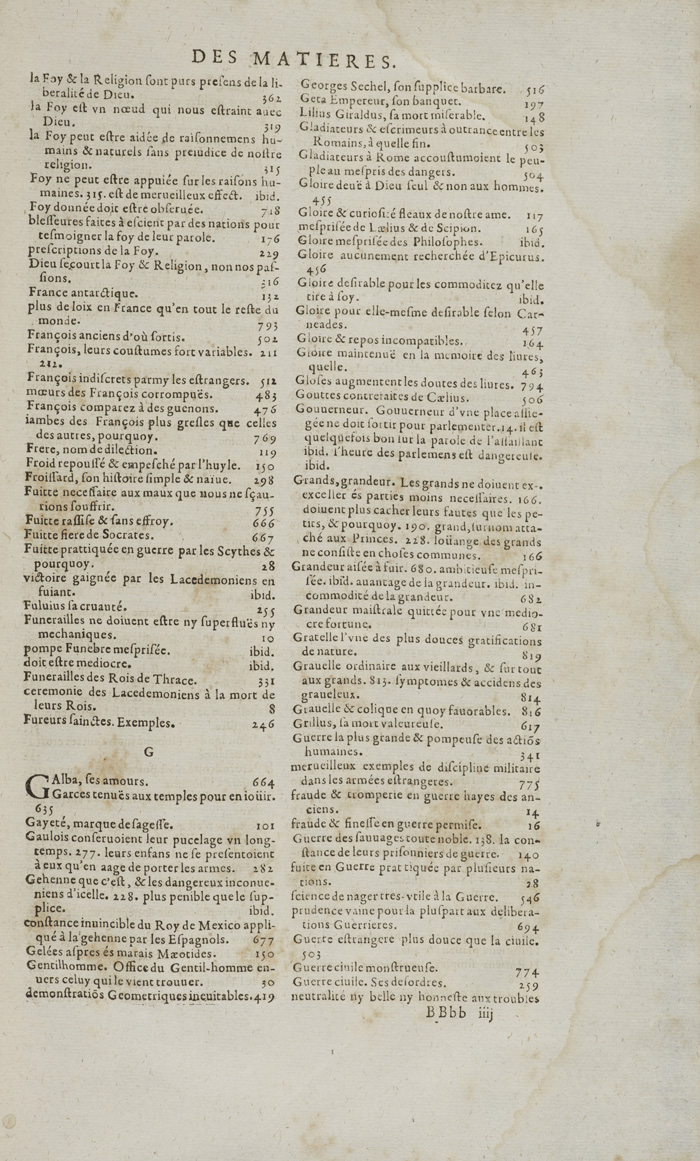 DES MATIERES.
la Foy & la Religion ſont purs preſens de la li-
beralité de Dieu. 362
la Foy eſt vn nœud qui nous eſtraint auec
Dieu. 319
la Foy peut eſtre aidée de raiſonnemens hu-
mains & naturels ſans preiudice de noſtre
religion. 315
Foy ne peut eſtre appuiée ſur les raiſons hu-
maines. 315. eſt de merueilleux effect. ibid.
Foy donnée doit eſtre obſeruée. 718
bleſſeures faites à eſcient par des nations pour
teſmoigner la foy de leur parole. 176
preſcriptions de la Foy. 229
Dieu ſecourt la Foy & Religion, non nos paſ-
ſions. 316
France antarctique. 132
plus de loix en France qu'en tout le reſte du
monde. 793
François anciens d'où ſortis. 502
François, leurs couſtumes fort variables. 211
212.
François indiſcrets parmy les eſtrangers. 512
mœurs des François corrompuës. 483
François comparez à des guenons. 476
iambes des François plus greſles que celles
des autres, pourquoy. 769
Frere, nom de dilection. 119
Froid repouſſé & empeſché par l'huyle. 150
Froiſſard, ſon hiſtoire ſimple & naïue. 298
Fuitte neceſſaire aux maux que nous ne ſçau-
rions ſouffrir. 755
Fuitte raſſiſe & ſans effroy. 666
Fuitte fiere de Socrates. 667
Fuitte prattiquée en guerre par les Scythes &
pourquoy. 28
victoire gaignée par les Lacedemoniens en
fuiant. ibid.
Fuluius ſa cruauté. 255
Funerailles ne doiuent eſtre ny ſuperfluës ny
mechaniques. 10
pompe Funebre meſpriſée. ibid.
doit eſtre mediocre. ibid.
Funerailles des Rois de Thrace. 331
ceremonie des Lacedemoniens à la mort de
leurs Rois. 8
Fureurs ſainctes. Exemples. 246
G
GAlba, ſes amours. 664
Garces tenuës aux temples pour en ioüir.
635
Gayeté, marque de ſageſſe. 101
Gaulois conſeruoient leur pucelage vn long-
temps. 277. leurs enfans ne ſe preſentoient
à eux qu'en aage de porter les armes. 282
Gehenne que c'eſt, & les dangereux inconue-
niens d'icelle. 228. plus penible que le ſup-
plice. ibid.
conſtance inuincible du Roy de Mexico appli-
qué à la gehenne par les Eſpagnols. 677
Gelées aſpres és marais Mæotides. 150
Gentilhomme. Office du Gentil-homme en-
uers celuy qui le vient trouuer. 30
demonſtratiõs Geometriques ineuitables. 419
Georges Sechel, ſon ſupplice barbare. 516
Geta Empereur, ſon banquet. 197
Lilius Giraldus, ſa mort miſerable. 148
Gladiateurs & eſcrimeurs à outrance entre les
Romains, à quelle fin. 503
Gladiateurs à Rome accouſtumoient le peu-
ple au meſpris des dangers. 504
Gloire deuë à Dieu ſeul & non aux hommes.
455
Gloire & curioſité fleaux de noſtre ame. 117
meſpriſée de Lælius & de Scipion. 165
Gloire meſpriſée des Philoſophes. ibid.
Gloire aucunement recherchée d'Epicurus.
456
Gloire deſirable pour les commoditez qu'elle
tire à ſoy. ibid.
Gloire pour elle-meſme deſirable ſelon Car-
neades. 457
Gloire & repos incompatibles. 164
Gloire maintenuë en la memoire des liures,
quelle. 463
Gloſes augmentent les doutes des liures. 794
Gouttes contrefaites de Cælius. 506
Gouuerneur. Gouuerneur d'vne place aſſie-
gée ne doit ſortir pour parlementer. 14. il eſt
quelquefois bon ſur la parole de l'aſſaillant
ibid. l'heure des parlemens eſt dangereuſe.
ibid.
Grands, grandeur. Les grands ne doiuent ex-
exceller és parties moins neceſſaires. 166.
doiuent plus cacher leurs fautes que les pe-
tits, & pourquoy. 190. grand, ſurnom atta-
ché aux Princes. 228. loüange des grands
ne conſiſte en choſes communes. 166
Grandeur aiſée à fuir. 680. ambitieuſe meſpri-
ſée. ibid. auantage de la grandeur. ibid. in-
commodité de la grandeur. 682
Grandeur maiſtrale quittée pour vne medio-
cre fortune. 681
Gratelle l'vne des plus douces gratifications
de nature. 819
Grauelle ordinaire aux vieillards, & ſur tout
aux grands. 813. ſymptomes & accidens des
graueleux. 814
Grauelle & colique en quoy fauorables. 816
Grillus, ſa mort valeureuſe. 617
Guerre la plus grande & pompeuſe des actiõs
humaines. 341
merueilleux exemples de diſcipline militaire
dans les armées eſtrangeres. 775
fraude & tromperie en guerre hayes des an-
ciens. 14
fraude & fineſſe en guerre permiſe. 16
Guerre des ſauuages toute noble. 138. la con-
ſtance de leurs priſonniers de guerre. 140
fuite en Guerre prattiquée par pluſieurs na-
tions. 28
ſcience de nager tres-vtile à la Guerre. 546
prudence vaine pour la pluſpart aux delibera-
tions Guerrieres. 694
Guerre eſtrangere plus douce que la ciuile.
503
Guerre ciuile monſtrueuſe. 774
Guerre ciuile. Ses deſordres. 259
neutralité ny belle ny honneſte aux troubles
BBbb iiij